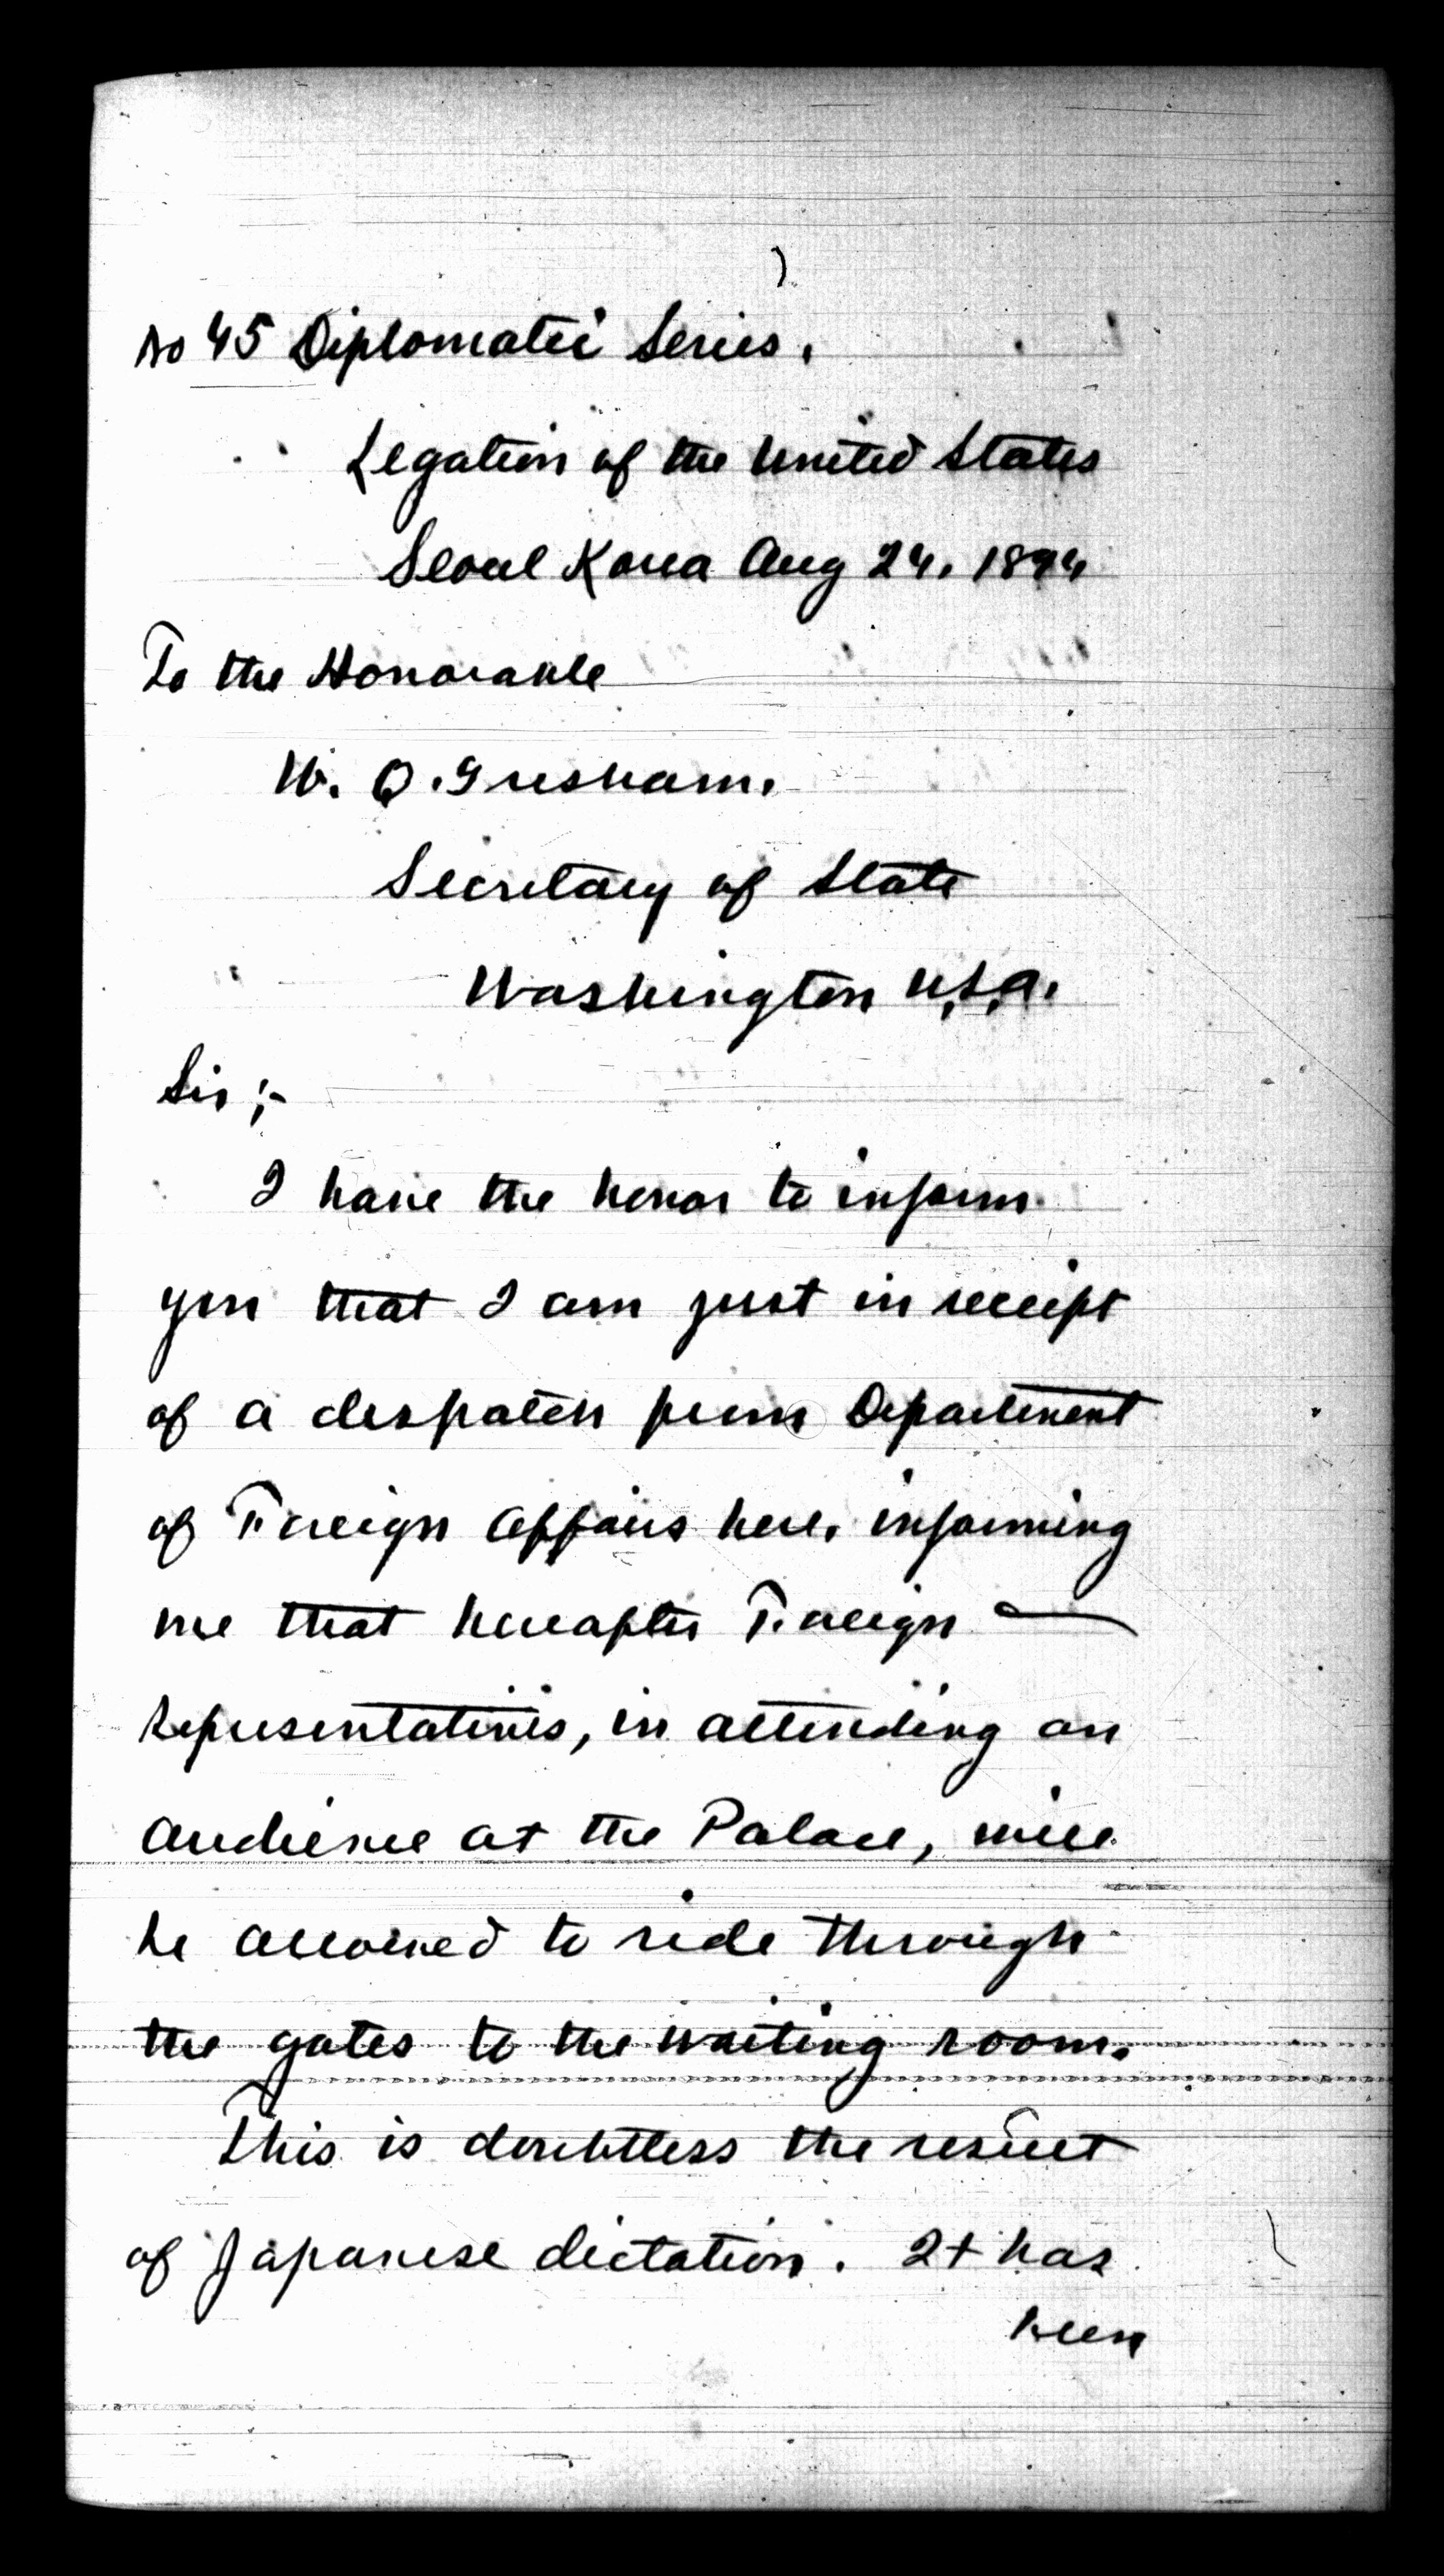 No 45 Diplomatic Series.
Legation of the United States
Seoul Korea Aug 24, 1894
To the Honorable
W. Q. Gresham,
Secretary of State
Washington U.S.A.
Sir;-
I have the honor to inform
you that I am just in receipt
of a despatch from Department
of Foreign Affairs here, informing
me that hereafter Foreign
representatives, in attending an
audience at the Palace, will
be allowed to ride through
the gates to the waiting room.
This is doubtless the result
of Japanese dictation. It has
been